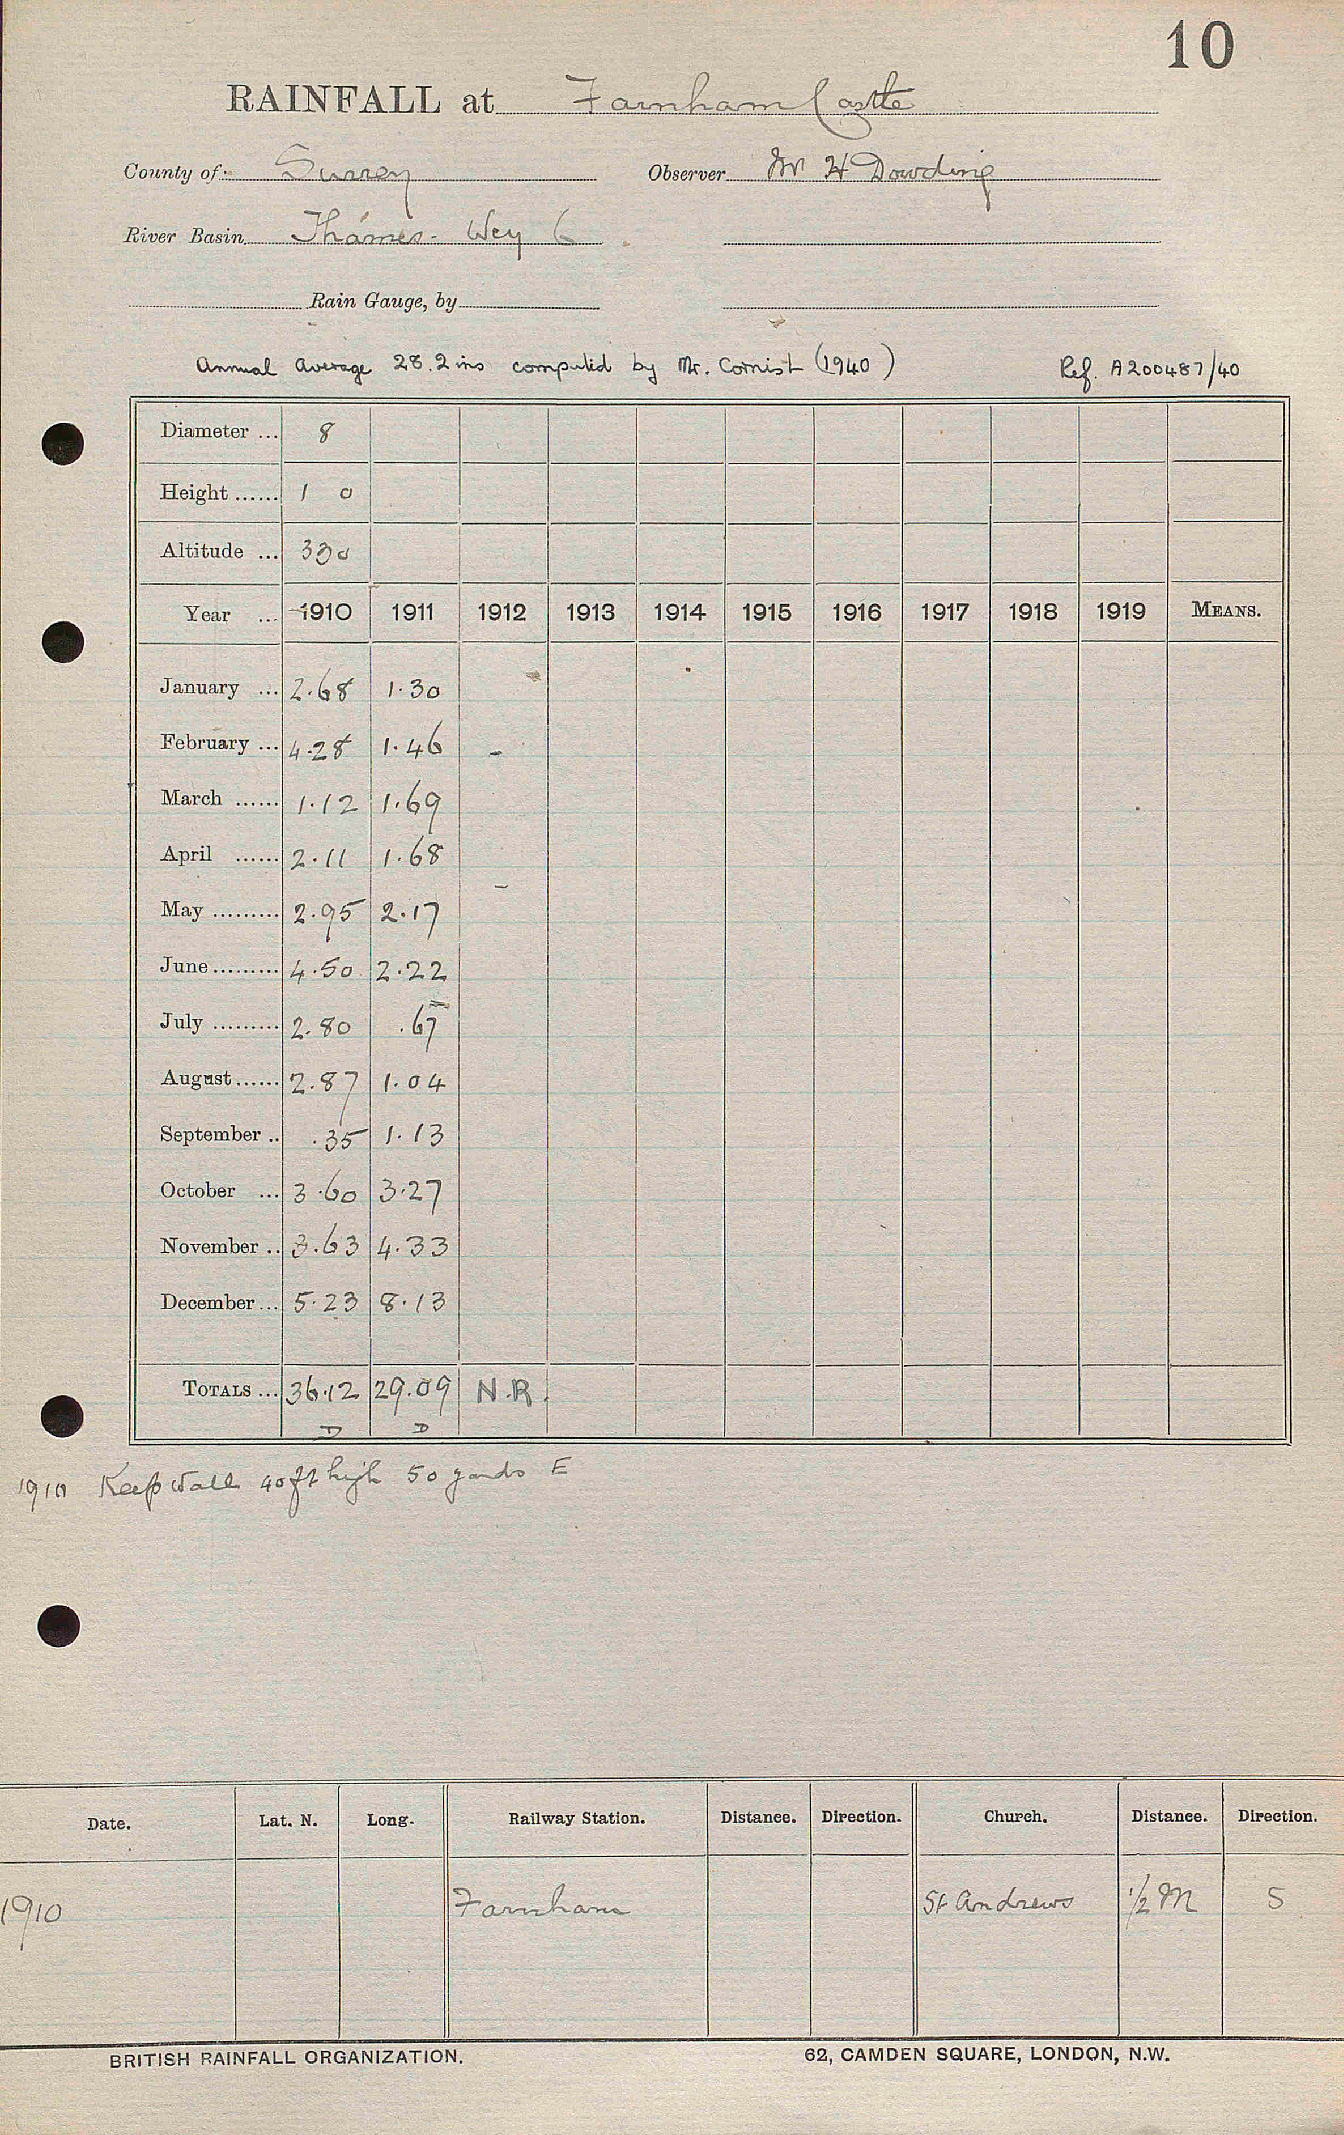 10
RAINFALL at Farnham Castle
County of Surrey Observer Mr H Dowding
River Basin Thames - Wey 6
Rain Gauge, by
Annual Average 28.2 ins computed by Mr. Cornish (1940) Ref. A200487/40
Diameter ... 8
Height ...... 1 0
Altitude ... 330
Year ... 1910 1911 1912 1913 1914 1915 1916 1917 1918 1919 MEANS.
January ... 2.68 1.30
February ... 4.28 1.46 -
March ...... 1.12 1.69
April ...... 2.11 1.68
May ......... 2.95 2.17
June ......... 4.50 2.22
July ......... 2.80 .67
August ...... 2.87 1.04
September .. .35 1.13
October ... 3.60 3.27
November .. 3.63 4.33
December ... 5.23 8.13
TOTALS ... 36.12 29.09 N.R.
D D
1910 Keep wall 40 ft high 50 yards E
Date. Lat. N. Long. Railway Station. Distance. Direction. Church. Distance. Direction.
1910 Farnham St Andrews 1/2 M S
BRITISH RAINFALL ORGANIZATION. 62, CAMDEN SQUARE, LONDON, N.W.